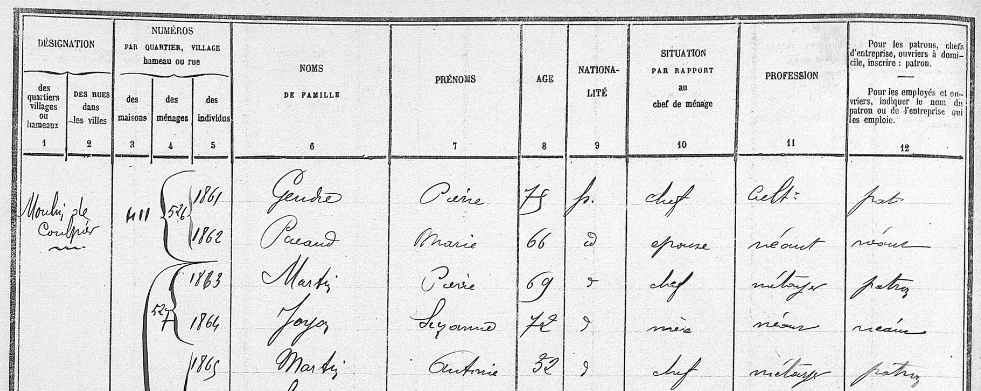 DÉSIGNATION
NUMÉROS
PAR QUARTIER, VILLAGE
hameau ou rue
des quartiers villages ou hameaux
DES RUES dans les villes
des maisons
des ménages
des individus
NOMS
DE FAMILLE
PRÉNOMS
AGE
NATIONA-
LITÉ
SITUATION
PAR RAPPORT
au
chef de ménage
PROFESSION
Pour les patrons, chefs
d'entreprise, ouvriers à domi-
cile, inscrire : patron.
Pour les employés et ou-
vriers, indiquer le nom du
patron ou de l'entreprise qui
les emploie.
1 2 3 4 5 6 7 8 9 10 11 12
Moulin de
411 526 1861 Gendre Pierre 75 f. chef cult. pat
1862 Marie 66 d épouse néant néant
1863 Martin Pierre 69 d chef métayer patron
527 1864 Joyon Suzanne 72 d mère néant néant
1865 Martin Antoine 32 d chef métayer patron